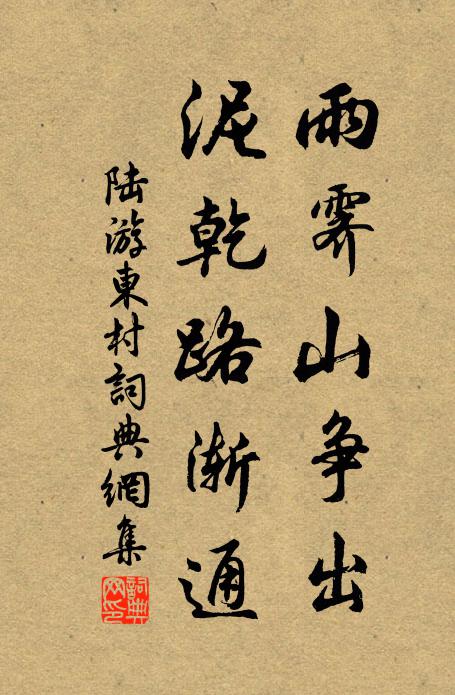 雨霁山争出
泥乾路渐通
陆游東村詞典網集
詞典
网印